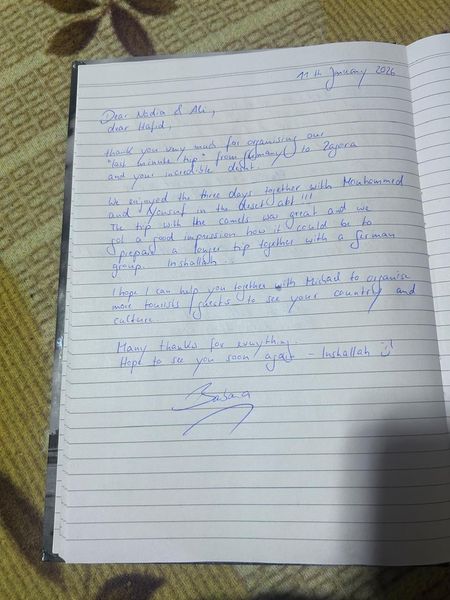 11th January 2026
Dear Nadia & Ali,
dear Hafid,
thank you very much for organising our
"last minute trip" from Germany to Zagora
and your incredible desert.
We enjoyed the three days together with Mouhammed
and Yousuf in the desert a lot !!!
The trip with the camels was great and we
got a good impression how it could be to
prepare a longer trip together with a German
group. Inshallah
I hope I can help you together with Michael to organise
more tourists / guests to see your country and
culture.
Many thanks for everything.
Hope to see you soon again - Inshallah